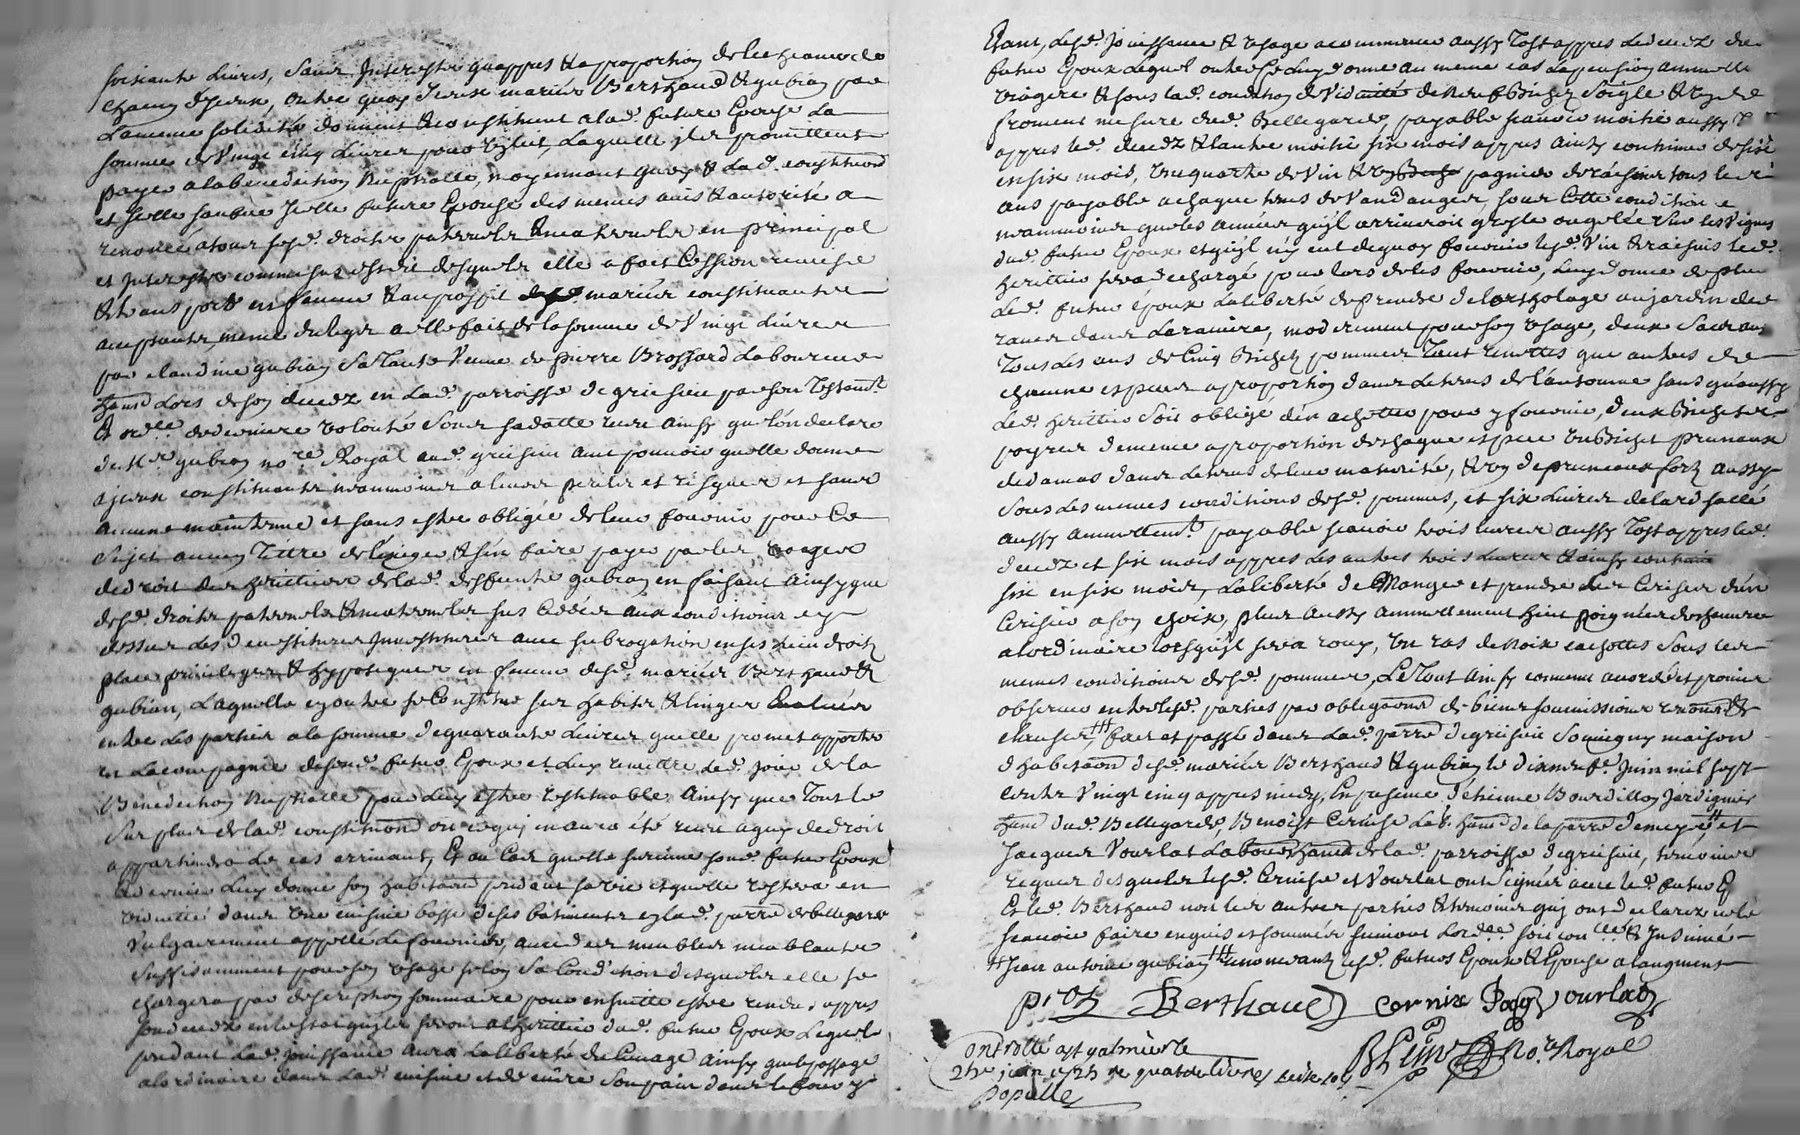 soixante Livres, sans Interestz qu'appres & a proportion de les heance de
chacun d'jceux, outre quoy Jceux mariés Berthaud & gubian par
La meme solidité donnent & constituent a lad.e future Epouse La
somme de Vingt cinq Livres pour, Laquelle jls promettent
payer a la benediction Nuptialle, moyennant quoy & Lad.e constitution
et jcelle future Epouse des memes avis & autorité a
renoncé a tous ses d. droits paternels & maternels en principal
et Interestz desquels elle a fait Cession remise
& transport en faveur & au proffit desd. mariés constituants
acceptants, meme du legat a elle fait de la somme de Vingt Livres
par claudine gubian sa Tante Veuve de pierre Brossard Laboureur
hant Lors de son decez en Lad.e parroisse de griesieu par son Testamt
& de derniere volonté
de M.e gubian no.re Royal aud. griesieu avec pouvoir quelle donne
a jceux constituants a leurs perils et risques et sans
aucune maintenue et sans estre obligée de leur fournir pour Ce
Sujet aucun Tittre
de droit des herittiers de lad.e deffunte gubian en faisant Ainsy que
desd. droits paternels & maternels sus Cedés aux conditions cy
dessus avec subrogation en ses lieu droits
place privileges & hypoteques en faveur desd. mariés Berthaud &
gubian, Laquelle en outre se Constitue ses habits & linges Evalués
entre Les parties a la somme de quarante Livres quelle promet apporter
en La compagnie desond. futur Epoux et Luy remettre Led. jour de la
Benediction Nuptialle pour Luy estre restituable Ainsy que Tout Le
Surplus de lad.e constitution ou ce qui m'aura été reçu a qui de droit
appartiendra Le cas arrivant, Et au Cas quelle survive sond. futur Epoux
Ce dernier Luy donne son habitation pendant sa vie et quelle restera en
viduitté dans Une cuisine basse de ses batiments en lad.e parr.e de bellegarde
Vulgairement appellé Le fournier, avec des meubles meublants
Suffisamment pour son Usage selon Sa Condition desquels elle se
chargera par description sommaire pour ensuitte estre rendu, appres
son decez en l'estat qu'jls seront a l'herittier dud. futur Epoux Lequel
pendant Lad.e jouissance aura La liberté de L'usage Ainsy que passage
a l'ordinaire dans Lad.e cuisine et de cuire Son pain dans le four y
Etant, Lesd. jouissance & Usage a commencer aussy Tost appres Le decez du
futur Epoux Lequel outre ce Luy donne au meme cas La pension annuelle
Viagere & sous lad.e condition de Viduitté de Neuf Bichetz Soigle & Un de
froment mesure dud. Bellegarde payable scavoir moitié aussy T
appres led. decez & l'autre moitié six mois appres Ainsy continuer de six
en six mois, Une quarte de Vin & Un pagnier de raisins tous les
ans payable a chaque tems de Vandanges, sous Cette condition
neammoins que les années qu'jl arriveroit gresle ou gelée sur Les Vignes
dud. futur Epoux et qu'jl n'y eut de quoy fournir lesd. Vin & raisins Led.
herittier sera dechargé pour lors de les fournir, Luy donne de plus
Led. futur Epoux La liberté de prendre de l'ortholage au jardin des
raves dans La raviere, moderement pour son Usage, deux Sacs aus
Tous Les ans de Cinq Bichetz pommes Tant renettes que autres de
chacune espece a proportion dans Le tems de l'automne sans qu'aussy
Led. herittier Soit obligé d'en achetter pour y fournir, deux Bichets
poyres de meme a proportion de chaque espece Un Bichet pruneaux
de damas dans Le tems de leur maturité, & Un de pruneaux fortz aussy
Sous Les memes conditions desd. pommes, et six Livres de lard sallé
aussy annuellemt payable scavoir trois livres aussy Tost appres led.
decez et six mois appres Les autres trois Livres & ainsy continuer
six en six mois, La liberté de Manger et prendre des Cerises d'un
Cerisier a son choix, plus aussy annuellement huit poignées de chanvre
a l'ordinaire lorsqu'jl sera rouy, Un ras de Noix cachottes Sous les
memes conditions desd. pommes, Le Tout Ainsy convenu accordé et promis
observer entre lesd. parties par obligations de biens soumissions renonc.ons &
clauses, fait et passé dans Lad.e parr.e de griesieu Souvigny maison
d'habitation desd. mariés Berthaud & gubian le dixneuf.e juin mil sept
cents Vingt cinq appres midy, En presence d'etienne Bourdillon jardignier
hant dud. Bellegarde, Benoist Cernise Lab.r hant de la parr.e de meys, et
Jacques Vourlat Laboureur hant de lad.e parroisse de griesieu, temoins
requis desquels lesd. Cernise et Vourlat ont Signés avec led. futur E
Et led. Berthaud non les autres parties & temoins qui ont declaré ne le
scavoir faire enquis et sommés suivant Lord.ce soit con.llé & Insinué
Jean antoine gubian
pros Berthaud cernize Jaqs vourlatz
Controllé a st galmier le
24e juin 1725 re quatre livres seize sols
populle
No.re Royal